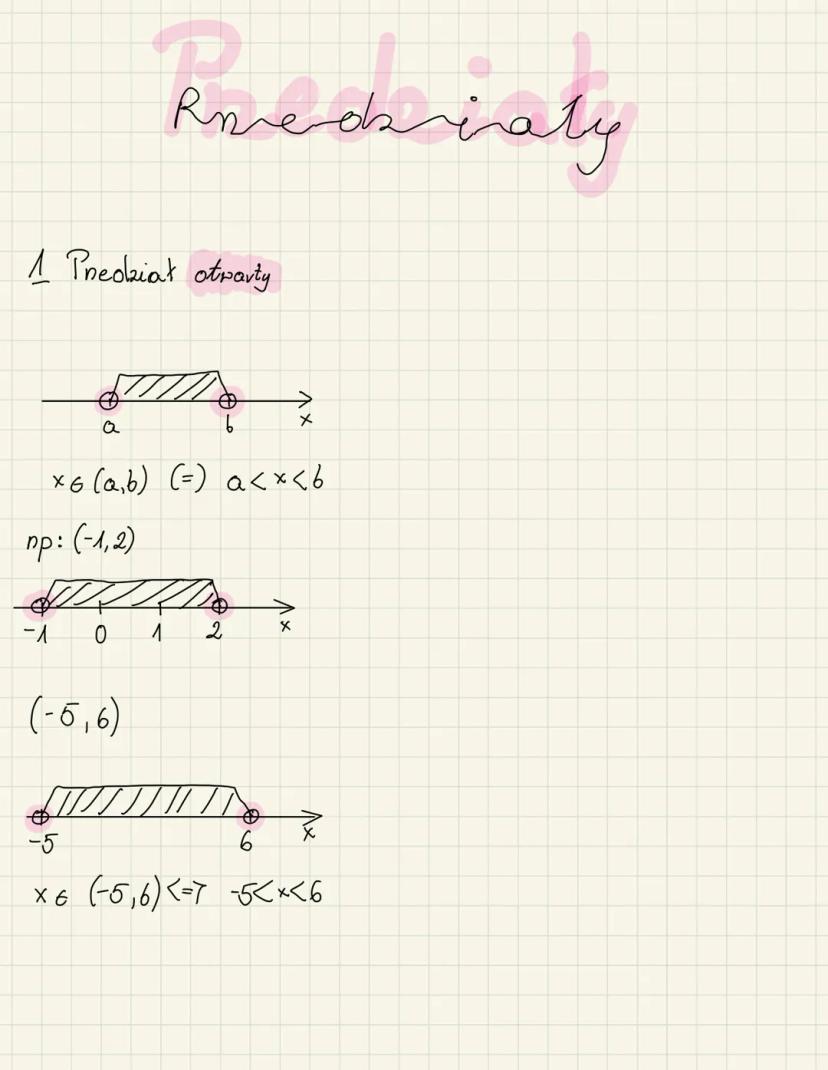 Przedziały
1 Przedział otwarty
a b x
x ∈ (a,b) (=) a < x < b
np: (-1,2)
-1 0 1 2 x
(-5,6)
-5 6 x
x ∈ (-5,6) <=7 -5<x<6